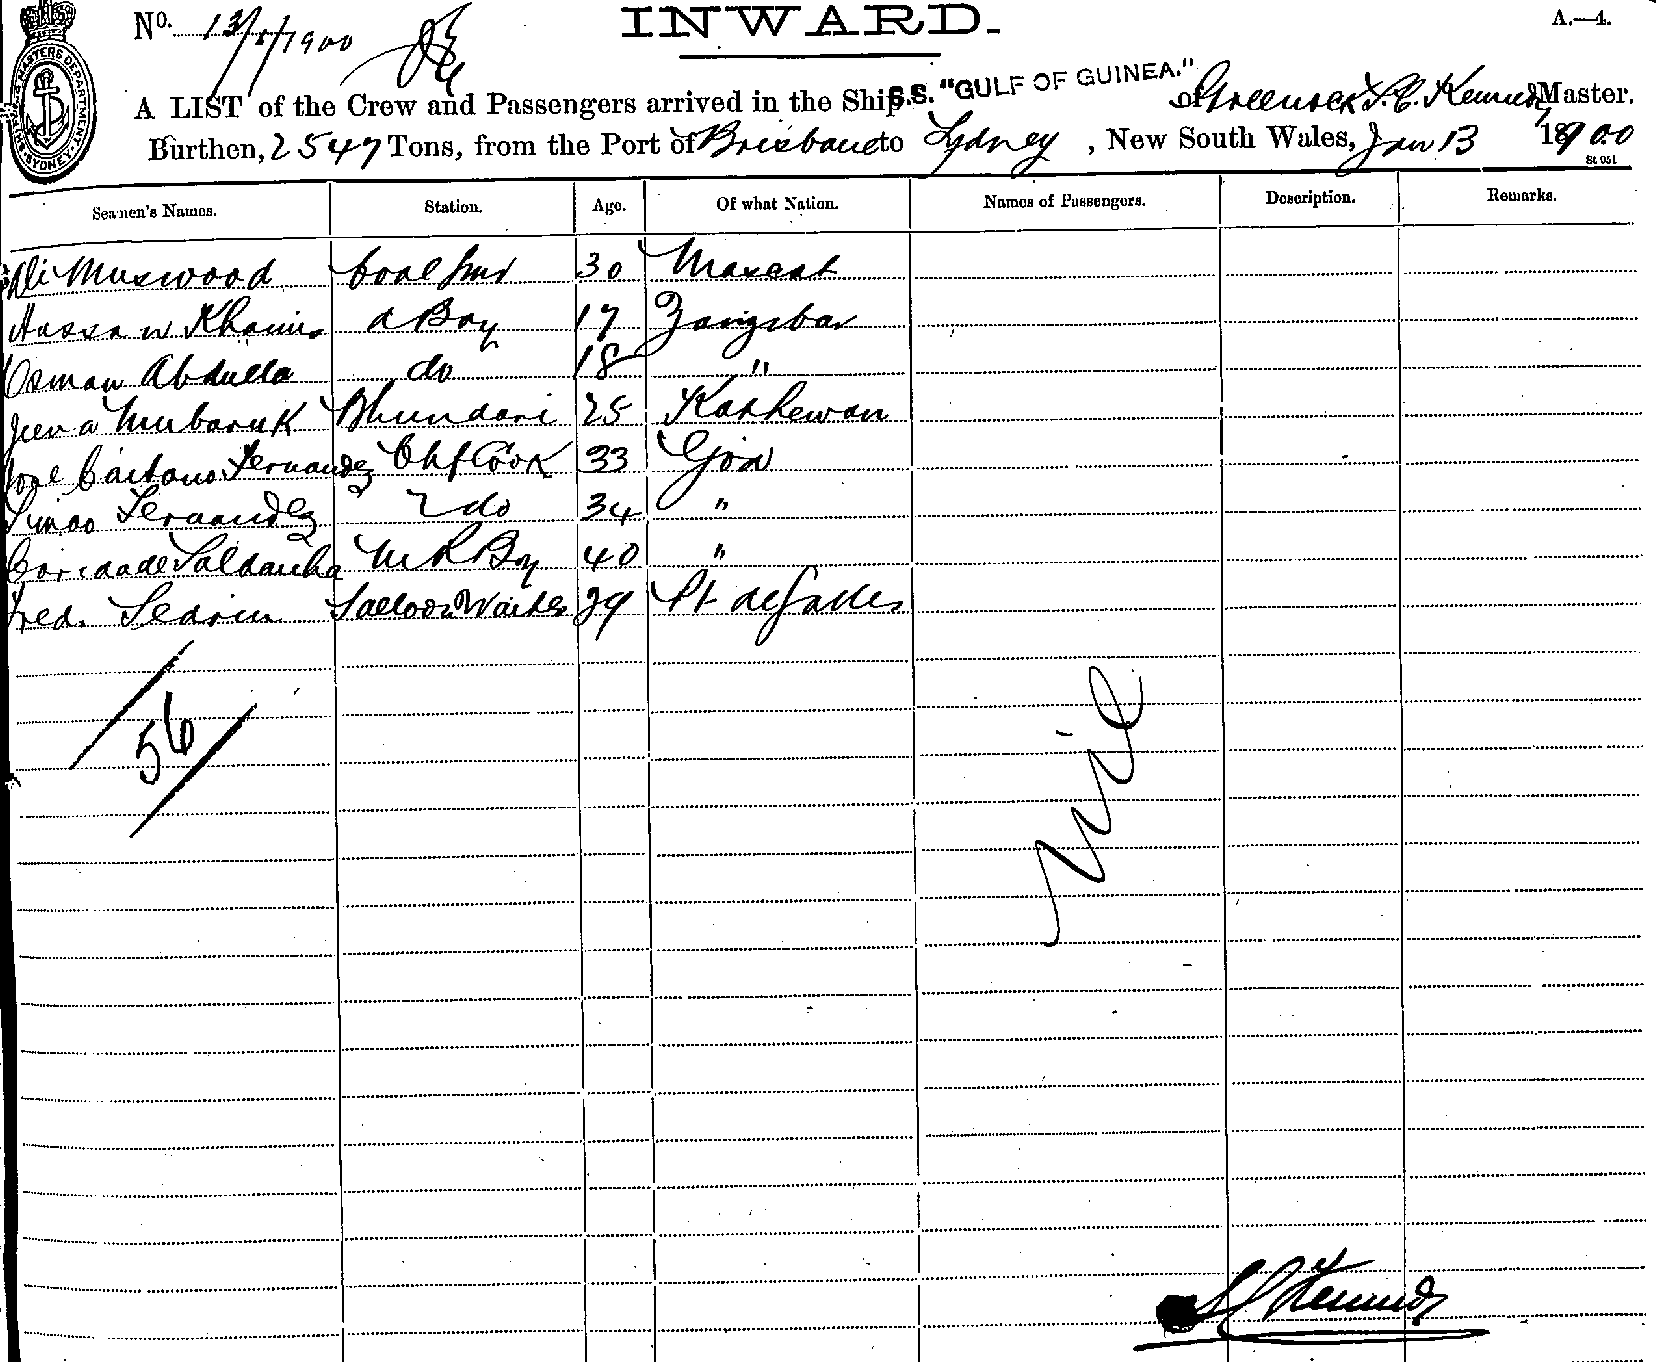 No. 13/1/1900
INWARD.
A.—4.
SHIPPING MASTERS DEPARTMENT SYDNEY
A LIST of the Crew and Passengers arrived in the Ship S.S. "GULF OF GUINEA." of Greenock Master.
Burthen, 2547 Tons, from the Port of Brisbane to Sydney, New South Wales, Jan 13 1900
St 051
Seamen's Names. Station. Age. Of what Nation. Names of Passengers. Description. Remarks.
Ali Muswood Coal 30 Mascat
Hassan Khamis a Boy 17 Zanzibar
Osman Abdulla do 18 "
Juma Mubaruk Bhundari 25
Jose Caitano Fernandez Chf Cook 33 Goa
Simao Fernandez 2 do 34 "
Saldanha M R Boy 40 "
Fred. Saloon Waiter 29 Pt de Galles
56
Nil
Kennedy